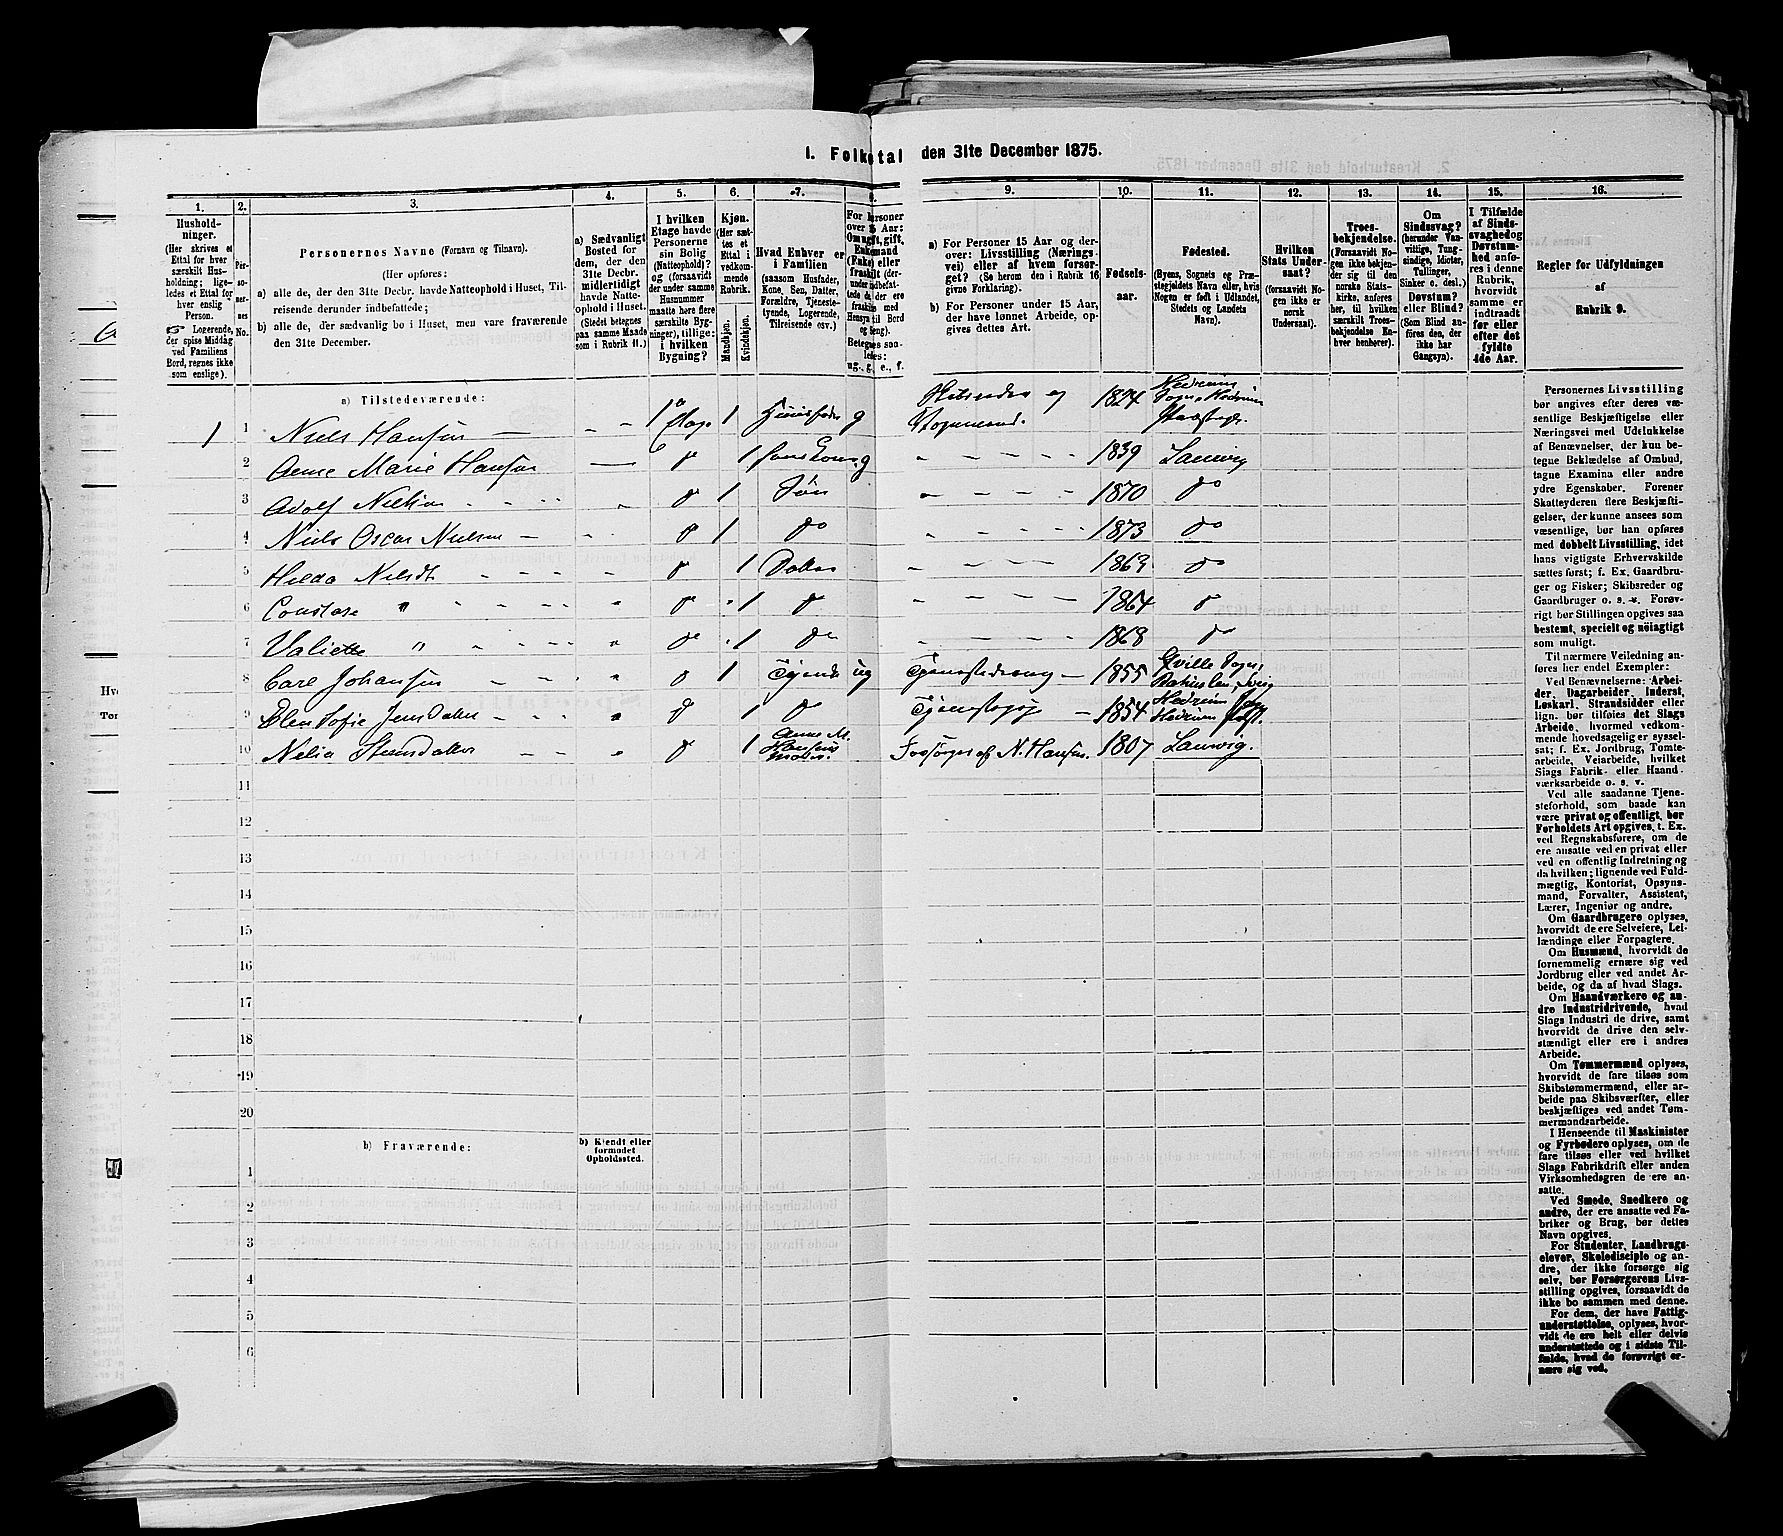 1. Folketal den 31te December 1875.
1.
Hushold-
ninger.
(Her skrives et
Ettal for hver
særskilt Hus-
holdning; lige-
ledes et Ettal for
hver enslig
Person.
Logerende,
der spise Middag
ved Familiens
Bord, regnes ikke
som enslige).
2.
Per-
so-
ner-
nes
No.
3.
Personernes Navne (Fornavn og Tilnavn).
(Her opføres:
a) alle de, der den 31te Decbr. havde Natteophold i Huset, Til-
reisende derunder indbefattede;
b) alle de, der sædvanlig bo i Huset, men vare fraværende
den 31te December.
4.
a) Sædvanligt
Bosted for
dem, der den
31te Decbr.
midlertidigt
havde Natte-
ophold i Huset.
(Stedet betegnes
paa samme Maade
som i Rubrik 11.)
5.
I hvilken
Etage havde
Personerne
sin Bolig
(Natteophold)?
og (forsaavidt
der under samme
Husnummer
maatte høre flere
særskilte Byg-
ninger), tillige:
i hvilken
Bygning?
6.
Kjøn.
(Her sæt-
tes et
Ettal i
vedkom-
mende
Rubrik.
Mandkjøn.
Kvindekjøn.
7.
Hvad Enhver er
i Familien
(saasom Husfader,
Kone, Søn, Datter,
Forældre, Tjeneste-
tyende, Logerende,
Tilreisende osv.)
8.
ug., g., e., f.
9.
a) For Personer 15 Aar og der-
over: Livsstilling (Nærings-
vei) eller af hvem forsør-
get? (Se herom den i Rubrik 16
givne Forklaring).
b) For Personer under 15 Aar,
der have lønnet Arbeide, op-
gives dettes Art.
10.
Fødsels-
aar.
11.
Fødested.
(Byens, Sognets og Præ-
stegjeldets Navn eller, hvis
Nogen er født i Udlandet,
Stedets og Landets
Navn).
12.
Hvilken
Stats Under-
saat?
(forsaavidt No-
gen ikke er
norsk
Undersaat).
13.
Troes-
bekjendelse.
(Forsaavidt No-
gen ikke bekjen-
der sig til den
norske Stats-
kirke, anføres
her, til hvilken
særskilt Troes-
bekjendelse En-
hver henhører).
14.
Om
Sindssvag?
(herunder Van-
vittige, Tung-
sindige, Idioter,
Tullinger,
Sinker o. desl.)
Døvstum?
eller Blind?
(Som Blind an-
føres den, der
ikke har
Gangsyn).
15.
I Tilfælde
af Sinds-
svaghed og
Døvstum-
hed anfø-
res i denne
Rubrik,
hvorvidt
samme er
indtraadt
før eller
efter det
fyldte
4de Aar.
16.
Regler for Udfyldningen
af
Rubrik 9.
a) Tilstedeværende:
1 1 Niels Hansen 1 Etage 1 Huusfader g og 1824 Hedrum Sogn, Hedrum
2 Anne Marie Hansen do 1 hans Kone g 1839 Laurvig
3 Adolf Nielsen do 1 Søn 1870 do
4 Niels Oscar Nielsen do 1 do 1873 do
5 Hilda Nilsdt do 1 Datter do
6 Constace " do 1 do 1864 do
7 Valiette " do 1 do 1868 do
8 Carl Johansen do 1 Tjener ug Tjenestedreng 1855
9 Elen Sofie Jensdatter do 1 do Tjenestepige 1854 Hedrum
10 do 1 Anne M. Hansens Moder. Forsørges af N. Hansen. 1807 Laurvig.
11
12
13
14
15
16
17
18
19
20
b) Fraværende:
b) Kjendt eller
formodet
Opholdssted.
1
2
3
4
5
6
Personernes Livsstilling
bør angives efter deres væ-
sentlige Beskjæftigelse eller
Næringsvei med Udelukkelse
af Benævnelser, der kun be-
tegne Beklædelse af Ombud,
tagne Examina eller andre
ydre Egenskaber. Forener
Skatteyderen flere Beskjæfti-
gelser, der kunne ansees som
væsentlige, bør han opføres
med dobbelt Livsstilling, idet
hans vigtigste Erhvervskilde
sættes først; f. Ex. Gaardbru-
ger og Fisker; Skibsreder og
Gaardbruger o. s. v. Forøv-
rigt bør Stillingen opgives saa
bestemt, specielt og nöiagtigt
som muligt.
Til nærmere Veiledning an-
føres her endel Exempler:
Ved Benævnelserne: Arbei-
der, Dagarbeider, Inderst,
Løskarl, Strandsidder eller
lign. bør tilføies det Slags
Arbeide, hvormed vedkom-
mende hovedsagelig er syssel-
sat; f. Ex. Jordbrug, Tomte-
arbeide, Veiarbeide, hvilket
Slags Fabrik- eller Haand-
værksarbeide o. s. v.
Ved alle saadanne Tjene-
steforhold, som baade kan
være privat og offentligt, bør
Forholdets Art opgives, t. Ex.
ved Regnskabsførere, om de
ere ansatte ved en privat eller
ved en offentlig Indretning og
da hvilken; lignende ved Fuld-
mægtig, Kontorist, Opsyns-
mand, Forvalter, Assistent,
Lærer, Ingeniør og andre.
Om Gaardbrugere oplyses,
hvorvidt de ere Selveiere, Lei-
lændinge eller Forpagtere.
Om Husmænd, hvorvidt de
fornemmelig ernære sig ved
Jordbrug eller ved andet Ar-
beide, og da af hvad Slags.
Om Haandværkere og an-
dre Industridrivende, hvad
Slags Industri de drive, samt
hvorvidt de drive den selv-
stændigt eller ere i andres
Arbeide.
Om Tømmermænd oplyses,
hvorvidt de fare tilsøs som
Skibstømmermænd, eller ar-
beide paa Skibsværfter, eller
beskjæftiges ved andet Tøm-
mermandsarbeide.
I Henseende til Maskinister
og Fyrbødere oplyses, om de
fare tilsøs eller ved hvilket
Slags Fabrikdrift eller anden
Virksomhedsgren de ere an-
satte.
Ved Smede, Snedkere og
andre, der ere ansatte ved Fa-
briker og Brug, bør dettes
Navn opgives.
For Studenter, Landbrugs-
elever, Skoledisciple og an-
dre, der ikke forsørge sig
selv, bør Forsørgerens Livs-
stilling opgives, forsaavidt de
ikke bo sammen med denne.
For dem, der have Fattig-
understøttelse, oplyses, hvor-
vidt de ere helt eller delvis
understøttede og i sidste Til-
fælde, hvad de forøvrigt er-
nære sig ved.